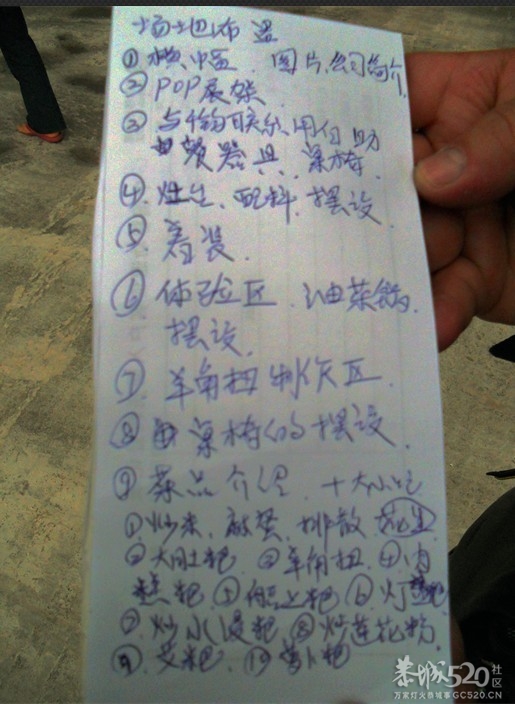 场地布置
① 横幅、图片、公司简介
② POP展架
③ 与 联系
器具、桌椅
④ 灶台、配料、摆设
⑤ 着装
⑥ 体验区、油茶锅
摆设
⑦ 羊角扭制作区
⑧ 桌椅的摆设
⑨ 菜品介绍 十大小吃
① 炒米、麻蛋、排散 花生
② 大肚粑 ③ 羊角扭 ④
糕粑 ⑤ 船上粑 ⑥ 灯
⑦ 炒水浸粑 ⑧ 炒莲花粉
⑨ 艾粑 ⑩ 萝卜粑
恭城520社区
万家灯火恭城事GC520.CN